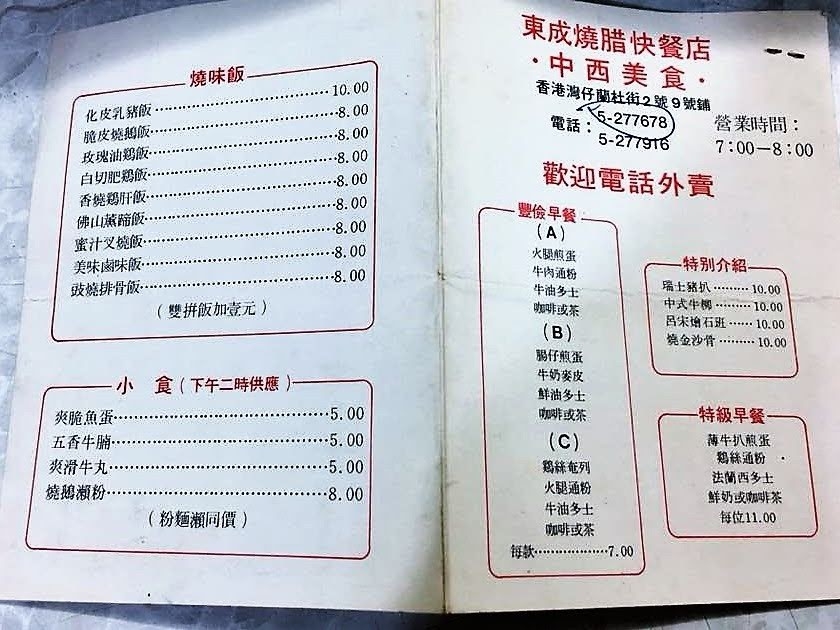 燒味飯
化皮乳豬飯 10.00
脆皮燒鵝飯 8.00
玫瑰油鷄飯 8.00
白切肥鷄飯 8.00
香燒鷄肝飯 8.00
佛山薰蹄飯 8.00
蜜汁叉燒飯 8.00
美味鹵味飯 8.00
豉燒排骨飯 8.00
(雙拼飯加壹元)
小 食(下午二時供應)
爽脆魚蛋 5.00
五香牛腩 5.00
爽滑牛丸 5.00
燒鵝瀨粉 8.00
(粉麵瀨同價)
東成燒腊快餐店
·中西美食·
香港灣仔蘭杜街2號9號鋪
電話:5-277678
5-277916
營業時間:
7:00—8:00
歡迎電話外賣
豐儉早餐
(A)
火腿煎蛋
牛肉通粉
牛油多士
咖啡或茶
(B)
腸仔煎蛋
牛奶麥皮
鮮油多士
咖啡或茶
(C)
鷄絲奄列
火腿通粉
牛油多士
咖啡或茶
每款 7.00
特别介紹
瑞士豬扒 10.00
中式牛柳 10.00
呂宋燴石班 10.00
燒金沙骨 10.00
特級早餐
薄牛扒煎蛋
鷄絲通粉
法蘭西多士
鮮奶或咖啡茶
每位11.00